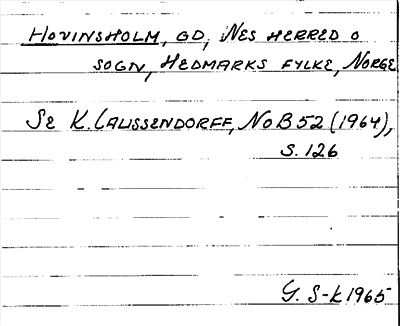 HOVINSHOLM, GD, NES HERRED O
SOGN, HEDMARKS FYLKE, NORGE
SE K. CLAUSSENDORFF, NOB 52 (1964),
S. 126
G. S-K 1965